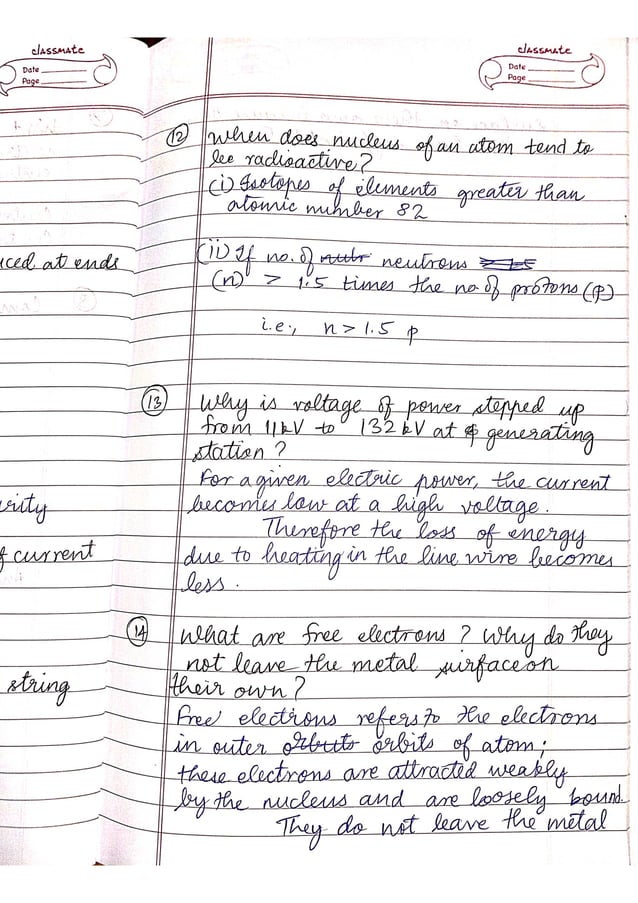 classmate
Date
Page
classmate
Date
Page
uced at ends
urity
f current
string
(12) When does nucleus of an atom tend to
be radioactive?
(i) Isotopes of elements greater than
atomic number 82
(ii) If no. of neutrons
(n) > 1.5 times the no. of protons (p)
i.e., n > 1.5 p
(13) Why is voltage of power stepped up
from 11kV to 132 kV at generating
station?
For a given electric power, the current
becomes low at a high voltage.
Therefore the loss of energy
due to heating in the line wire becomes
less.
(14) What are free electrons? Why do they
not leave the metal surface on
their own?
Free electrons refers to the electrons
in outer orbits of atom;
these electrons are attracted weakly
by the nucleus and are loosely bound.
They do not leave the metal